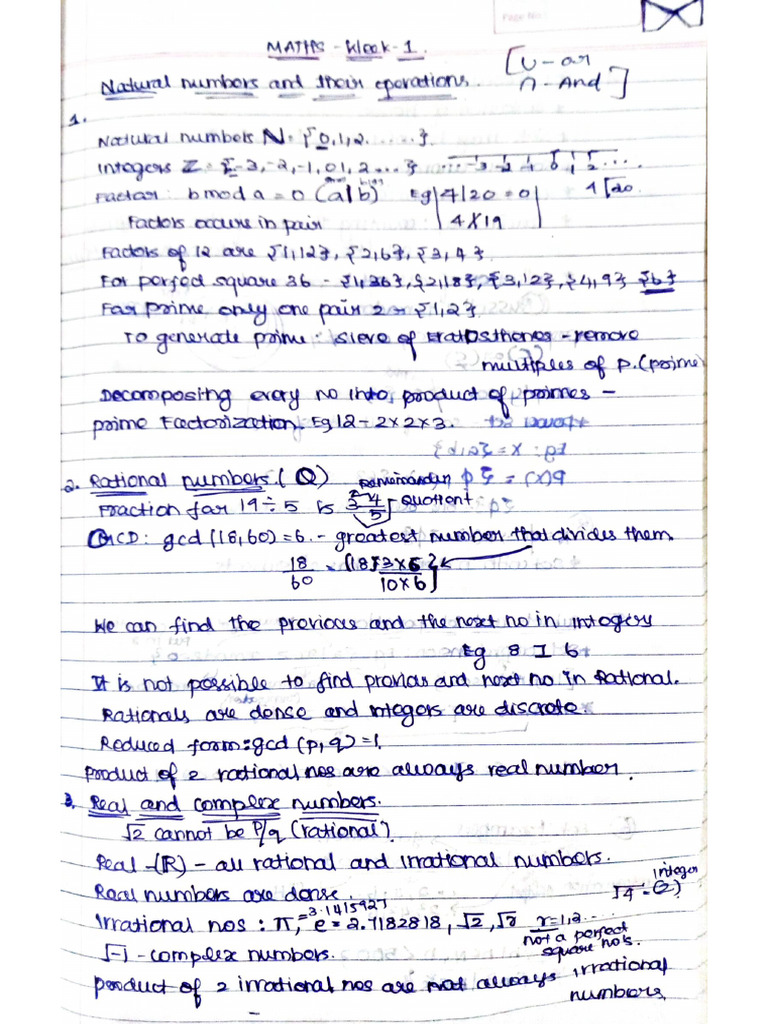 Page No.
MATHS - Week - 1.
Natural numbers and their operations. [∪ - or
∩ - And]
1.
Natural numbers N = {0,1,2.....}
Integers Z = {-3,-2,-1,01,2...}
Factor: b mod a = 0 (a|b) Eg |4|20 = 0| 4⟌20
Factors occurs in pair |4∤19|
Factors of 12 are {1,12}, {2,6}, {3,4}
For perfect square 36 - {1,36}, {2,18}, {3,12}, {4,9} {6}
For prime only one pair 2 - {1,2}
To generate prime: Sieve of Eratosthenes - remove
multiples of p. (prime)
Decomposing every no into product of primes -
prime Factorization. Eg 12 - 2x2x3.
2. Rational numbers. (Q)
Fraction for 19 ÷ 5 is 3 4/5 Quotient
GCD: gcd (18,60) = 6. - greatest number that divides them.
18/60 (18) 3x6 / 10x6
We can find the previous and the next no in integers
Eg 8 7 6
It is not possible to find previous and next no in Rational.
Rationals are dense and integers are discrete.
Reduced form: gcd (p,q) = 1.
product of 2 rational nos are always real number.
3. Real and complex numbers.
√2 cannot be P/q (rational)
Real - (R) - all rational and irrational numbers.
Real numbers are dense. √4 = (2) integer
Irrational nos : π, =3.1415927 e = 2.7182818, √2, √r r=1,2...
not a perfect
square no's.
√-1 - complex numbers.
product of 2 irrational nos are not always irrational
numbers